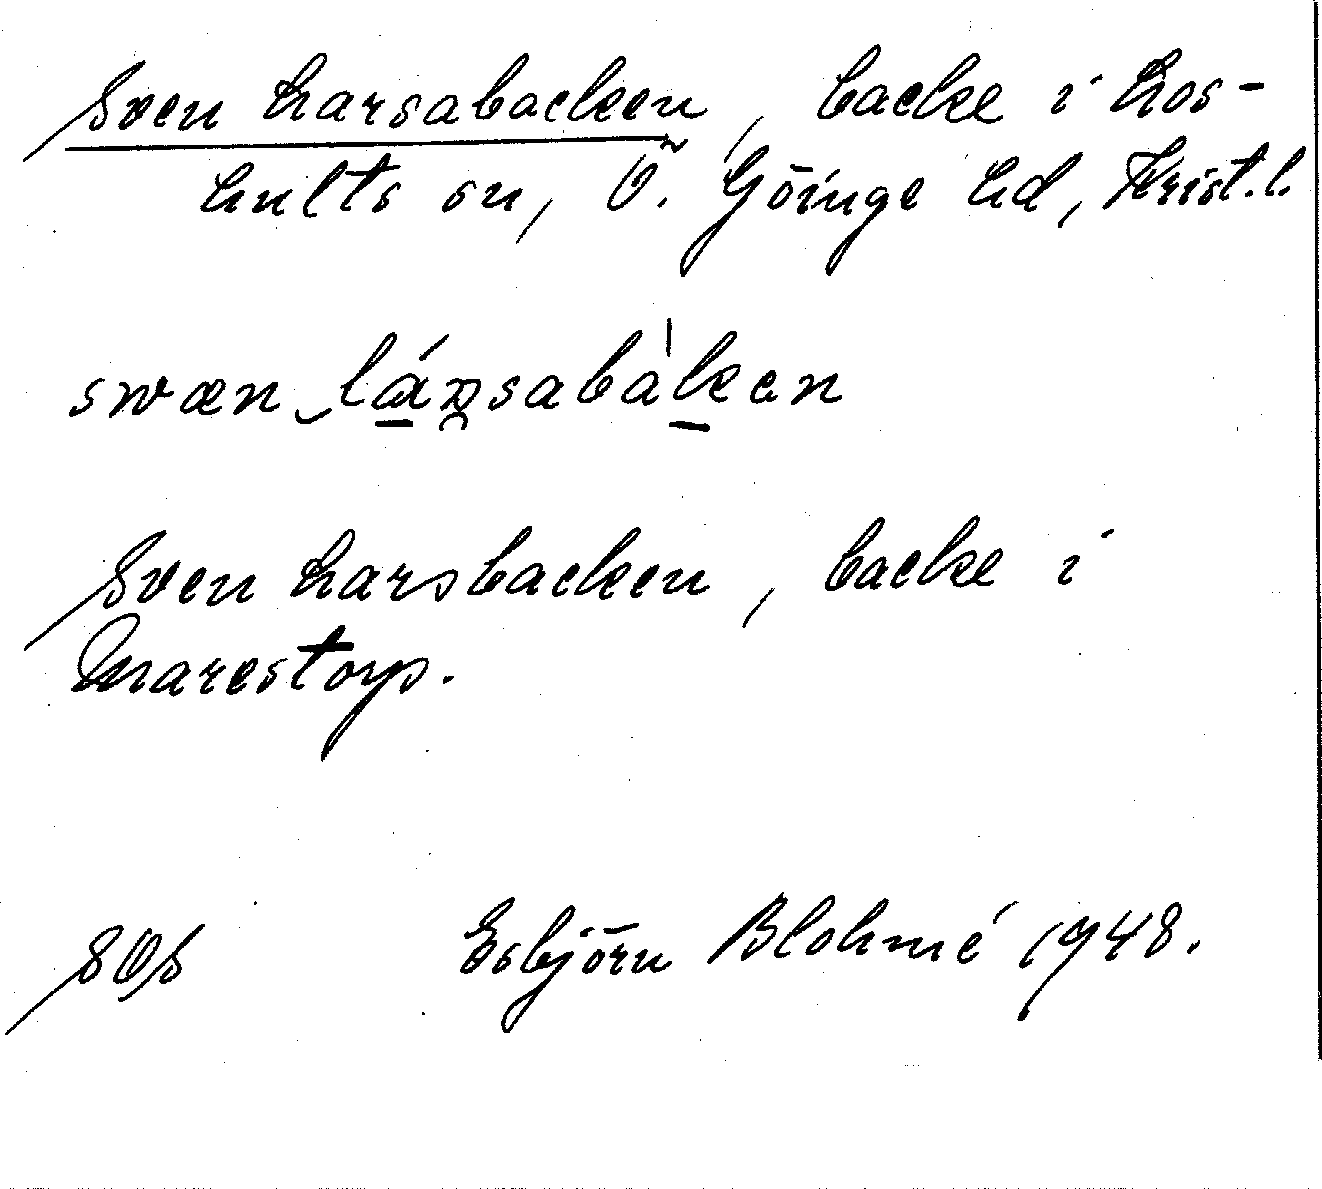 Sven Larsabacken, backe i Los-
hults sn, Ö. Göinge hd, Krist. l.
swæn lársabàken
Sven Larsbacken, backe i
Marestorp.
SOS Esbjörn Blohmé 1948.